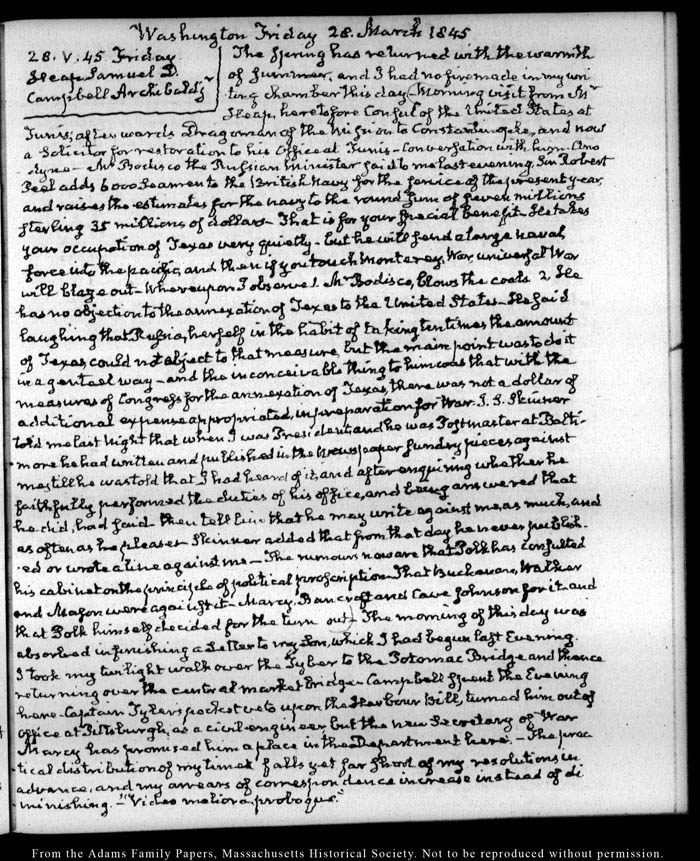 Washington Friday 28. March 1845
28. V. 45. Friday
Heap Samuel D.
Campbell Archibald Jr
The Spring has returned with the warmth
of Summer, and I had no fire made in my wri
ting chamber this day. Morning visit from Mr
Heap, heretofore Consul of the United States at
Tunis, afterwards Dragoman of the Mission to Constantinople, and now
a Solicitor for restoration to his Office at Tunis - Conversation with him.
Mr Bodisco the Russian Minister said to me last evening, Sir Robert
Peel adds 6000 Seamen to the British Navy for the service of the present year,
and raises the estimates for the navy to the round sum of seven millions
sterling 35 millions of dollars - That is for your special benefit - He takes
your occupation of Texas very quietly - but he will send a large naval
force into the pacific, and then if you touch Monterey, War, universal War
will blaze out - Whereupon I observe 1. Mr Bodisco, blows the coals 2, He
has no objection to the annexation of Texas to the United States - He said
laughing that Russia, herself in the habit of taking ten times the amount
of Texas, could not object to that measure, but the main point was to do it
in a genteel way - and the inconceivable thing to him was that with the
measures of Congress for the annexation of Texas, there was not a dollar of
additional expense appropriated, in preparation for War. J. S. Skinner
told me last night that when I was President, and he was Postmaster at Balti-
more he had written and published in the Newspaper sundry pieces against
me, till he was told that I had heard of it, and after enquiring whether he
faithfully performed the duties of his office, and being answered that
he did, had said then tell him that he may write against me as much, and
as often as he pleases - Skinner added that from that day he never publish-
ed or wrote a line against me - The rumours now are that Polk has consulted
his cabinet on the principle of political proscription - That Buchanan, Walker
and Mason were against it - Marcy, Bancroft and Cave Johnson for it, and
that Polk himself decided for the turn out - The morning of this day was
absorbed in finishing a Letter to my Son, which I had begun last Evening.
I took my twilight walk over the Tyber to the Potomac Bridge and thence
returning over the central market Bridge - Campbell spent the Evening
here - Captain Tyler's pocket veto upon the Harbour Bill, turned him out of
office at Pittsburgh, as a civil engineer but the new Secretary of War
Marcy has promised him a place in the Department here. - The prac
tical distribution of my time falls yet far short of my resolutions in
advance, and my arrears of correspondence increase instead of di
minishing. - "Video meliora, proboque."
From the Adams Family Papers, Massachusetts Historical Society. Not to be reproduced without permission.